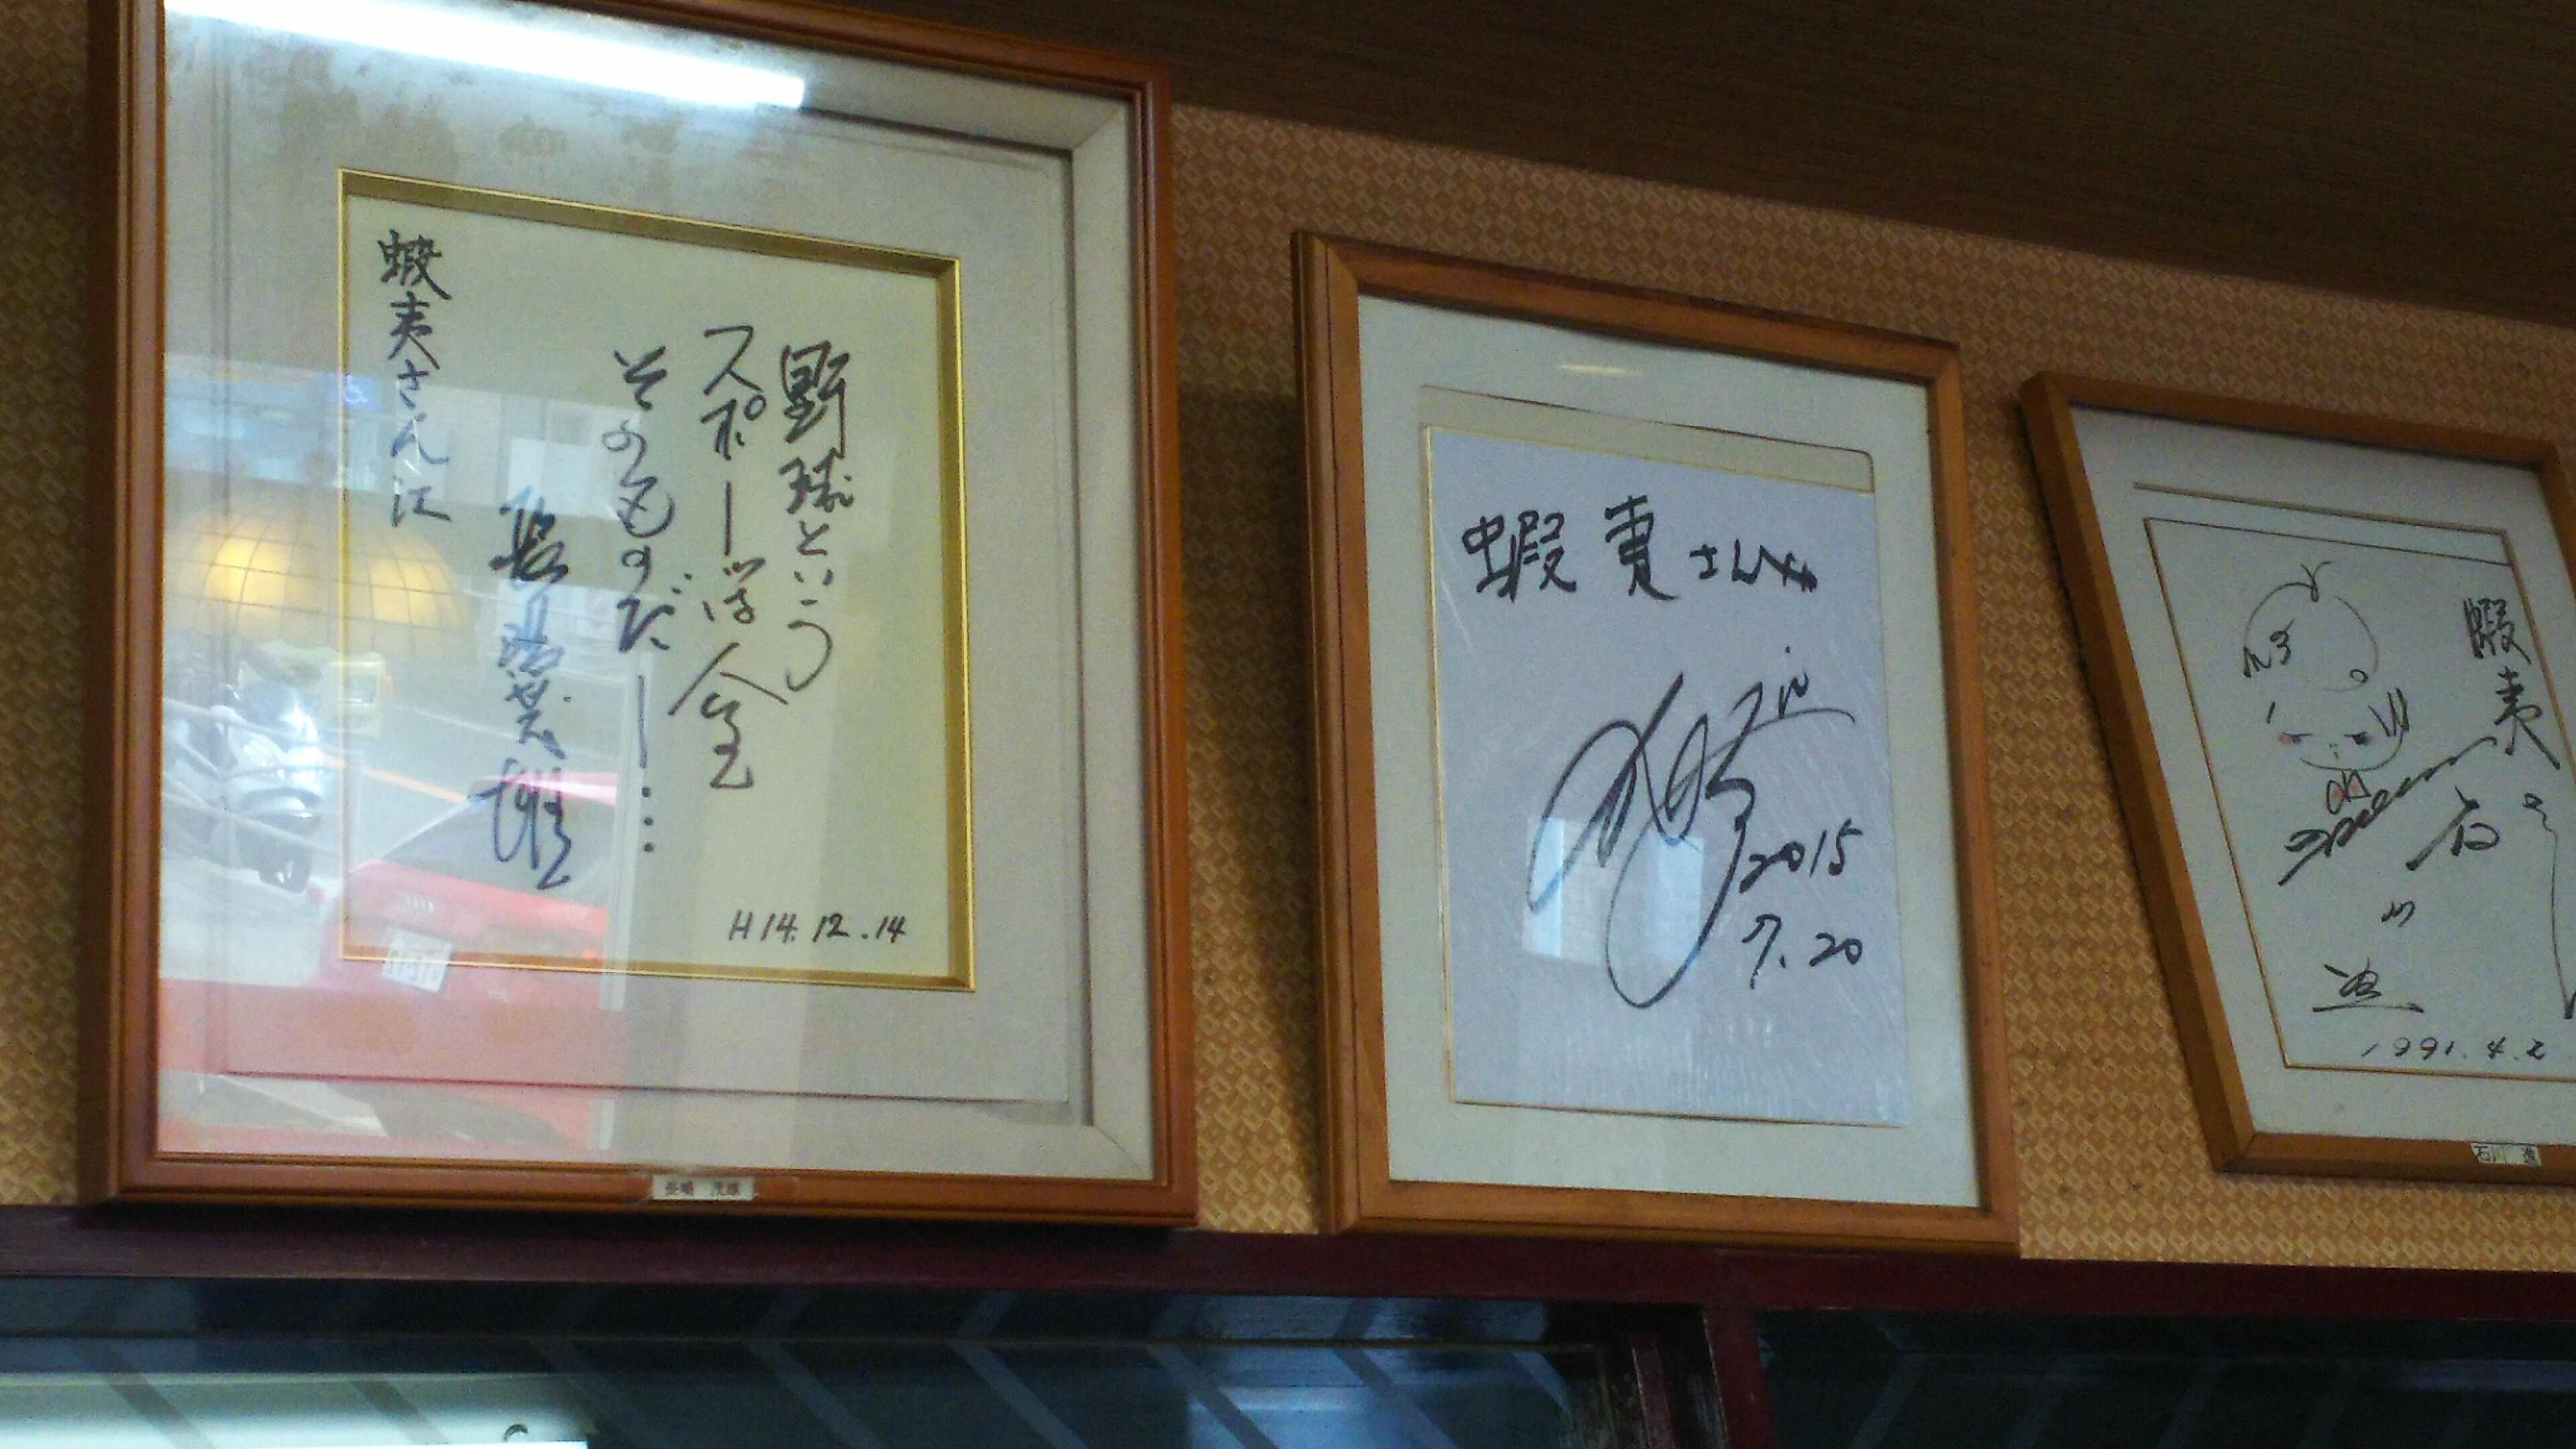 野球という
スポーツは 人生
そのものだー…
長嶋茂雄
蝦夷さん江
H14.12.14
長嶋 茂雄
蝦夷さんへ
2015
7.20
蝦夷
石川
進
1991.4.2
石川 進